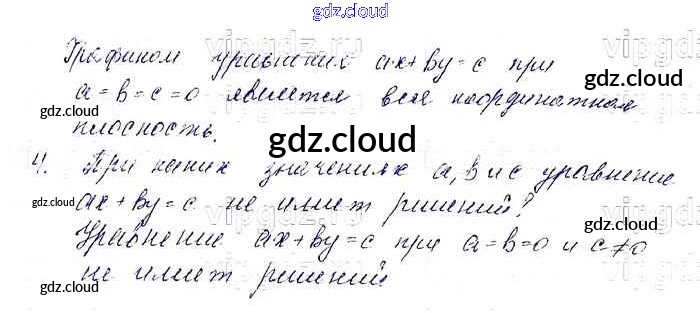 gdz.cloud
Графиком уравнения ax + by = c при
a = b = c = 0 является вся координатная
gdz.cloud gdz.cloud
плоскость.
gdz.cloud
4. При каких значениях a, b и c уравнение
ax + by = c не имеет решений?
gdz.cloud
Уравнение ax + by = c при a = b = 0 и c ≠ 0
не имеет решений
gdz.cloud gdz.cloud